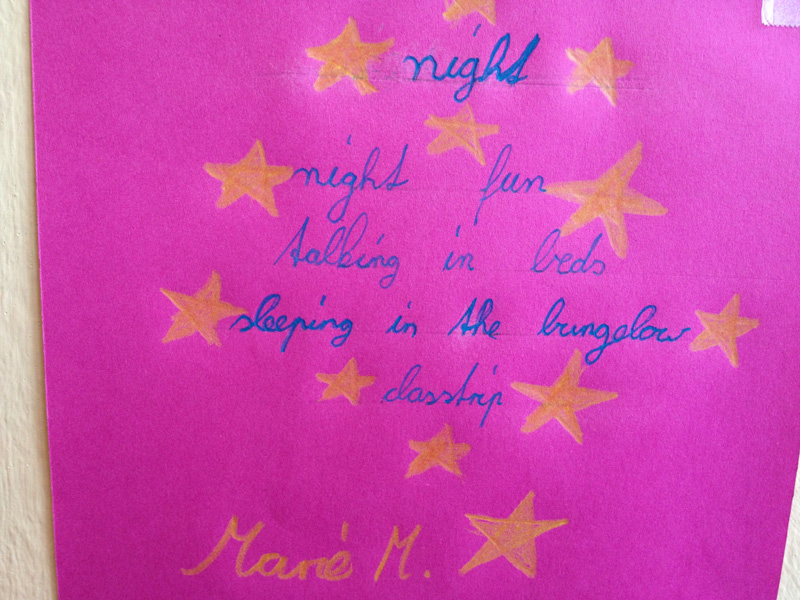 night
night fun
talking in beds
sleeping in the bungelow
classtrip
Marie M.